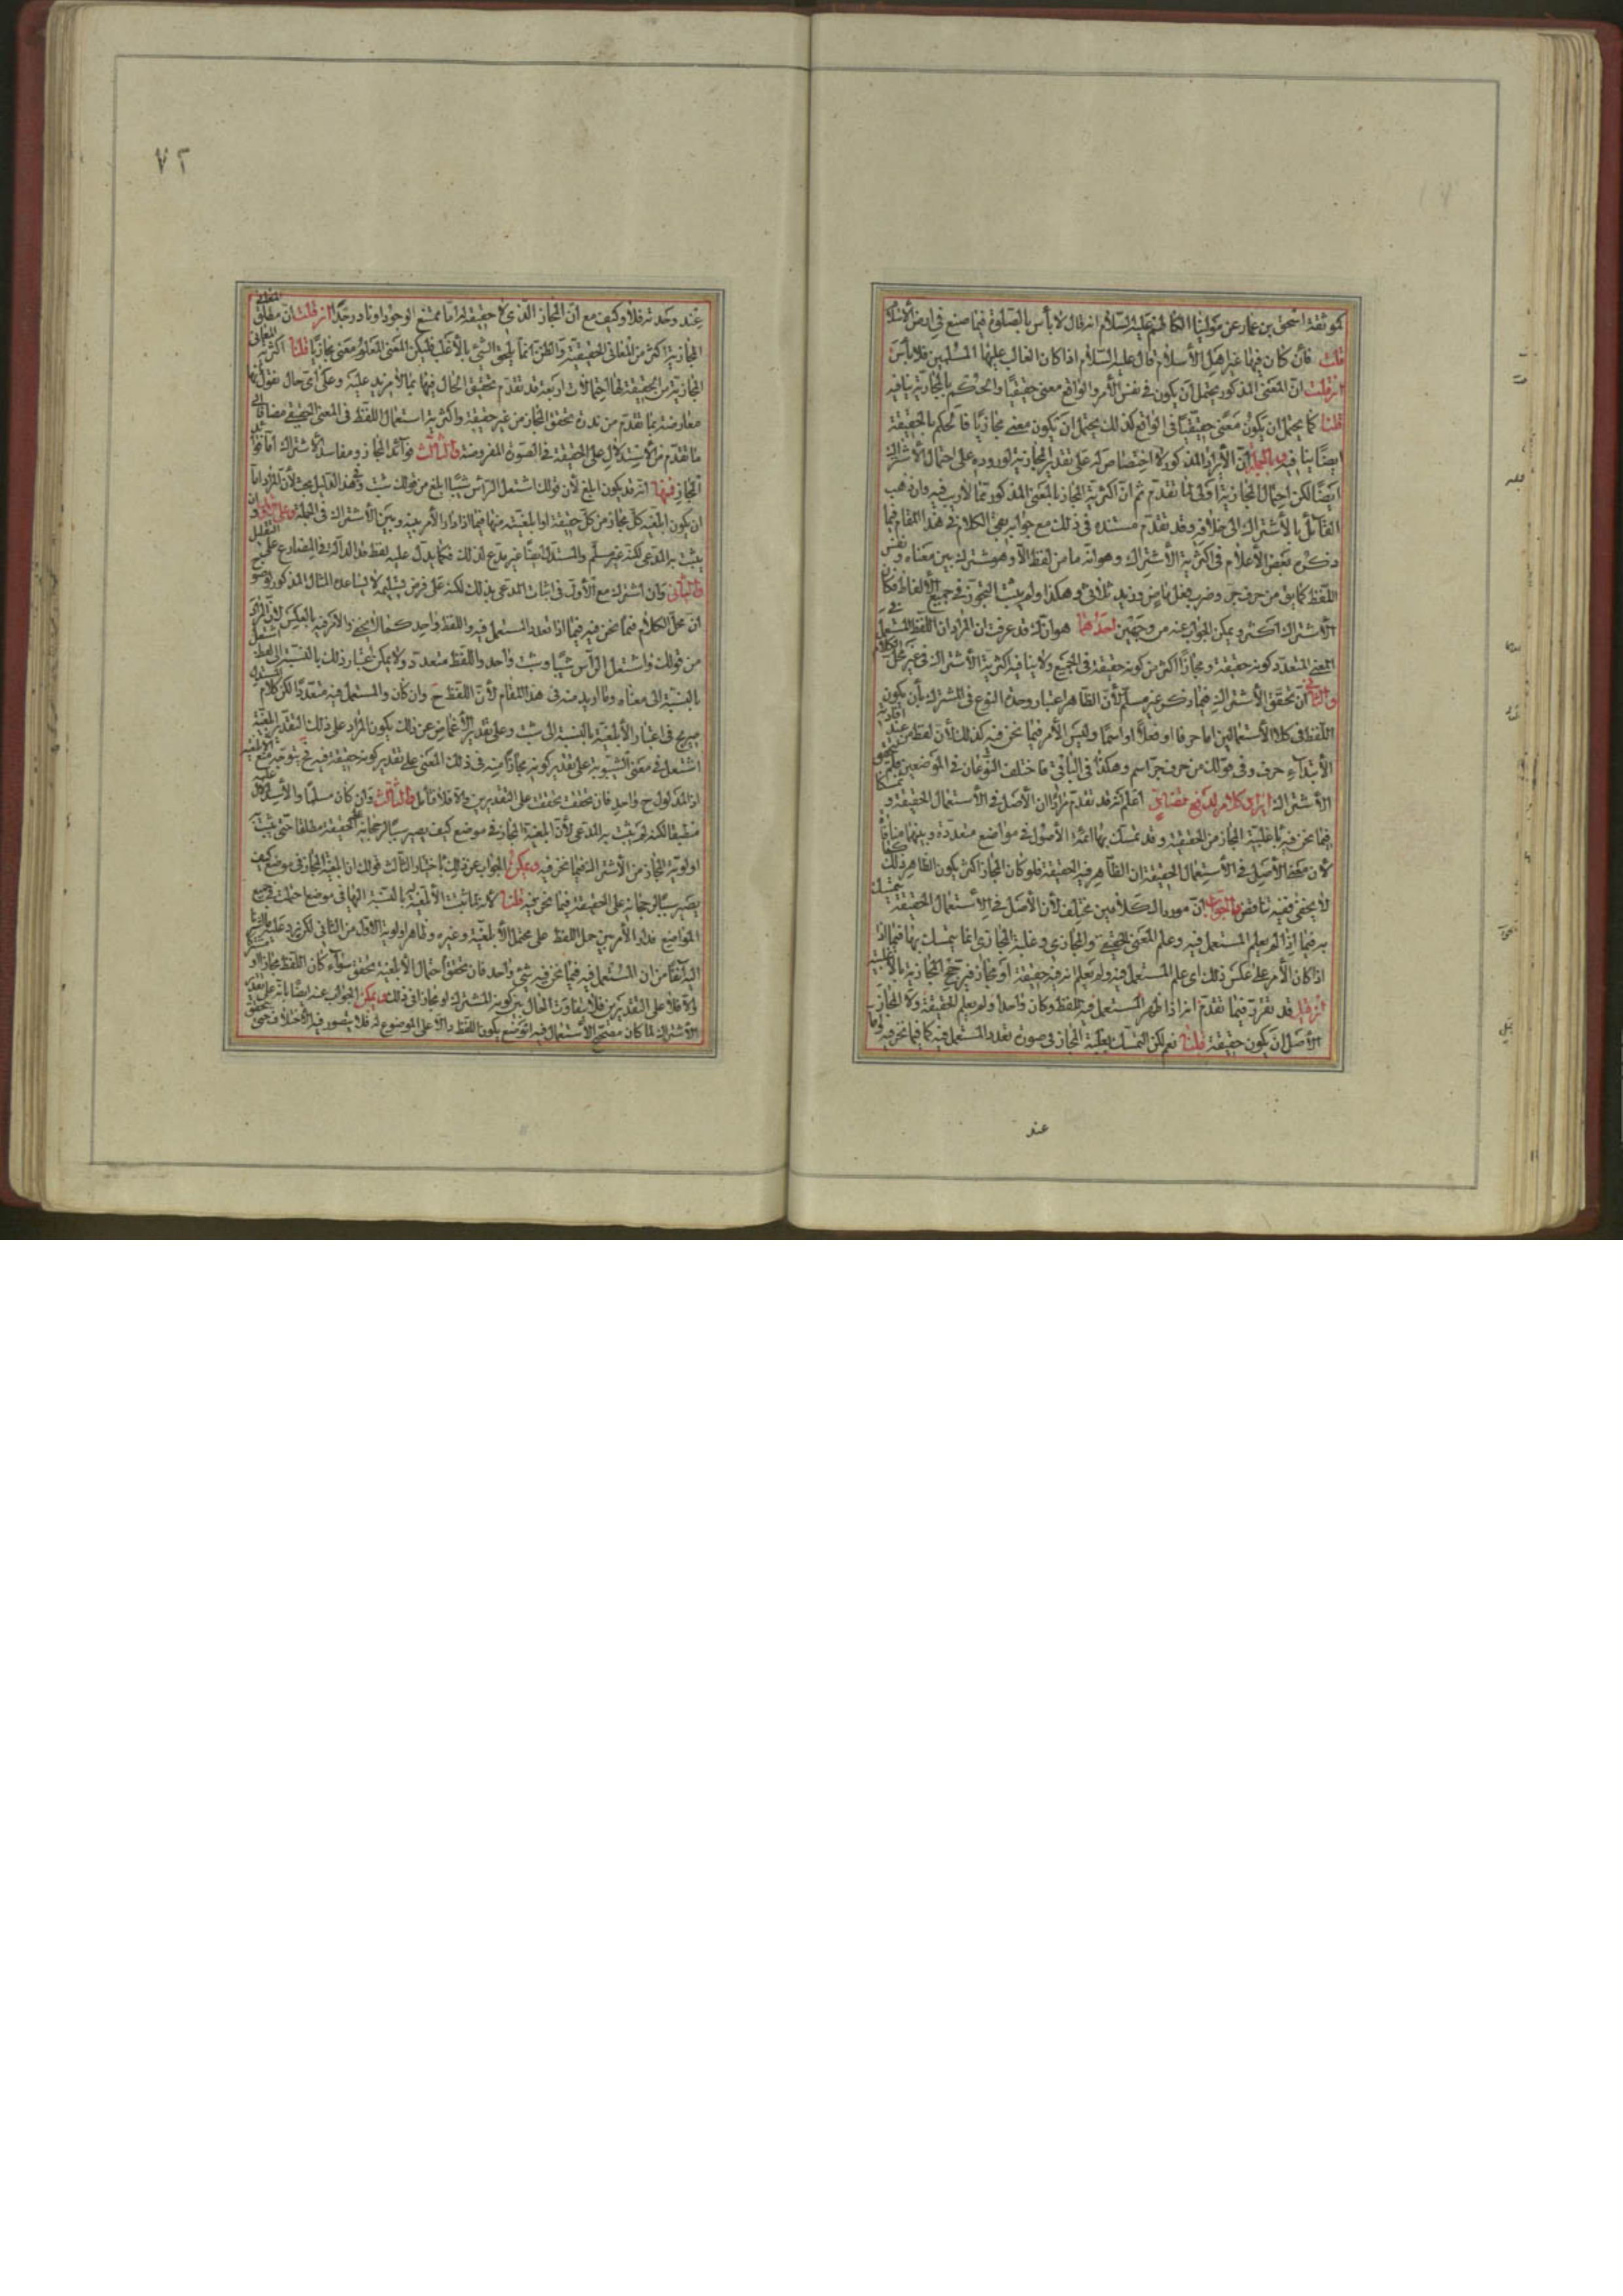 لموثقة اسحق بن عمار عن مولينا الكاظم عليه السلام انه قال لا بأس بالصلوة فيما صنع في ارض الاسلام
قلت فان كان فيها غير اهل الاسلام قال عليه السلام اذا كان الغالب عليها المسلمين فلا بأس
ان قلت ان المعنى المذكور يحتمل ان يكون في نفس الأمر والواقع معنى حقيقيا والحكم بالمجازية ينافيه
قلنا كما يحتمل ان يكون معنى حقيقيا في الواقع كذلك يحتمل ان يكون معنى مجازيا فالحكم بالحقيقة
ايضا ينافيه وبالجملة ان الايراد المذكور لا اختصاص له على تقدير المجازية لوروده على احتمال الاشتراك
ايضا لكن احتمال المجازية اولى لما تقدم ثم ان اكثرية المجاز بالمعنى المذكور مما لا ريب فيه وان ذهب
القائل بالاشتراك الى خلافه وقد تقدم مستنده في ذلك مع جوابه بقى الكلام في هذا المقام فيما
ذكره بعض الاعلام في اكثرية الاشتراك وهو انه ما من لفظ الا وهو مشترك بين معناه ونفس
اللفظ كما يق من حرف جر وضرب فعل ماض وزيد ثلاثي وهكذا ولم يثبت التجوز في جميع الالفاظ فكان
الاشتراك اكثر ويمكن الجواب عنه من وجهين احدهما هو انك قد عرفت ان المراد ان اللفظ المستعمل في
المعنى المتعدد كونه حقيقة ومجازا اكثر من كونه حقيقة في الجميع ولا ينافيه اكثرية الاشتراك في غير محل الكلام
والثاني ان تحقق الاشتراك فيما ذكر غير مسلم لأن الظاهر اعتبار وحدة النوع في المشترك بأن يكون
اللفظ في كلا الاستعمالين اما حرفا او فعلا او اسما وليس الأمر فيما نحن فيه كذلك لأن لفظ من عند افادته
الابتداء حرف وفي قولك من حرف جر اسم وهكذا في الباقي فاختلف النوعان في الموضعين فلم يتحقق
الاشتراك اعلم انه قد تقدم مرارا ان الاصل في الاستعمال الحقيقة و
فيما نحن فيه باغلبية المجاز من الحقيقة وقد تمسك بهما ائمة الاصول في مواضع متعددة وبينهما منافاة
لأن مقتضى الأصل في الاستعمال الحقيقة ان الظاهر فيه الحقيقة فلو كان المجاز اكثر يكون الظاهر ذلك
لا يخفى ففيه تناقض والجواب ان مورد الكلامين مختلف لأن الأصل في الاستعمال الحقيقة يتمسك
به فيما اذا لم يعلم المستعمل فيه وعلم المعنى الحقيقي والمجازي وغلبة المجاز انما يتمسك بها فيما اذا
اذا كان الأمر على عكس ذلك اى علم المستعمل فيه ولم يعلم انه فيه حقيقة او مجاز فيرجح المجازية بالاغلبية
ان قيل قد تقرر فيما تقدم انه اذا ظهر المستعمل فيه للفظ وكان واحدا ولم يعلم الحقيقة ولا المجاز
الأصل ان يكون حقيقة قلنا نعم لكن التمسك بغلبة المجاز في صورة تعدد المستعمل فيه كما فيما نحن فيه
عند
٧٢
عند وحدته فلا وكيف مع ان المجاز الذي لا حقيقة له اما ممتنع الوجود او نادر جدا ان قلت ان مطلق
المجازية اكثر من المعاني الحقيقية والظن انما يلحق الشيء بالأغلب فليكن المعنى المعلوم معنى مجازيا قلنا اكثرية
المجازية من الحقيقة لها احتمالات اربعة قد تقدم تحقيق الحال فيها بما لا مزيد عليه وعلى اى حال نقول انها
معارضة بما تقدم من ندرة تحقق المجاز من غير حقيقة واكثرية استعمال اللفظ في المعنى الحقيقي مضافا الى
ما تقدم من الاستدلال على الحقيقة في الصورة المفروضة والثالث فوائد المجاز ومفاسد الاشتراك اما فوائد
المجاز فمنها انه قد يكون ابلغ لأن قولك اشتعل الرأس شيبا ابلغ من قولك شبت وفي هذا التعليل بحث لأن المراد اما
ان يكون ابلغية كل مجاز من كل حقيقة او ابلغيته منها فيما اذا دار الأمر بينه وبين الاشتراك في الجملة
يثبت به المدعى لكنه غير مسلم والمستدل ايضا غير مدع لذلك كما يدل عليه لفظ قد الدالة في المضارع على التقليل
والثاني وان اشترك مع الأول في اثبات المدعى بذلك لكنه على فرض تسليمه لا يساعده المثال المذكور
ان محل الكلام فيما نحن فيه فيما اذا تعدد المستعمل فيه واللفظ واحد والأمر فيه بالعكس لأن المراد
من قولك واشتعل الرأس شيبا وشبت واحد واللفظ متعدد ولا يمكن اعتبار ذلك بالنسبة الى لفظ اشتعل
بالنسبة الى معناه وما اريد منه في هذا المقام لأن اللفظ ح وان كان والمستعمل فيه متعددا لكن كلام المستدل
صريح في اعتبار الأبلغية بالنسبة الى شبت وعلى تقدير الاغماض عن ذلك يكون المراد على ذلك التقدير ابلغية
اشتعل في معنى الشيبوبة على تقدير كونه مجازا منه في ذلك المعنى على تقدير كونه حقيقة فيه فح يتوجه منع الابلغية
اذ المدلول ح واحد فان تحققت تحققت على التقديرين والا فلا والثالث وان كان مسلما والاستدلال عليه
منطبقا لكنه لم يثبت به المدعى لأن ابلغية المجاز في موضع كيف يصير سببا لرجحانه على الحقيقة مطلقا حتى يثبت
اولوية المجاز من الاشتراك فيما نحن فيه ويمكن الجواب عن ذلك باختيار الثالث قولك ان ابلغية المجاز في موضع كيف
يصير سببا لرجحانه على الحقيقة فيما نحن فيه قلنا لأنه لما ثبت الابلغية بالنسبة اليها في موضع
المواضع فدار الأمر بين حمل اللفظ على محتمل الأبلغية وغيره وظاهر اولوية الأول من الثاني لكن يرد عليه ما اشرنا
اليه آنفا من ان المستعمل فيه فيما نحن فيه شيء واحد فان تحقق احتمال الأبلغية تحقق سواء كان اللفظ مجازا او مشتركا
والا فلا على التقديرين فلا يتفاوت الحال بين كونه المشترك او مجازا في ذلك ويمكن الجواب عنه ايضا بانه على تقدير
الاشتراك لما كان مصحح الاستعمال فيه الوضع يكون اللفظ دالا على الموضوع له فلا يتصور فيه الاختلاف